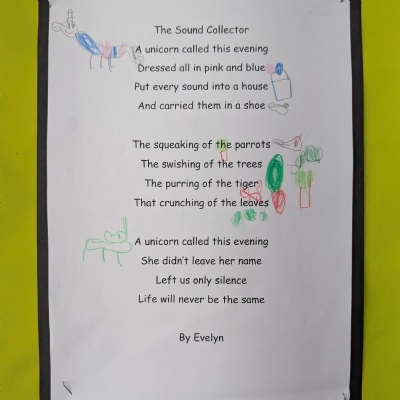 The Sound Collector
A unicorn called this evening
Dressed all in pink and blue
Put every sound into a house
And carried them in a shoe
The squeaking of the parrots
The swishing of the trees
The purring of the tiger
That crunching of the leaves
A unicorn called this evening
She didn't leave her name
Left us only silence
Life will never be the same
By Evelyn